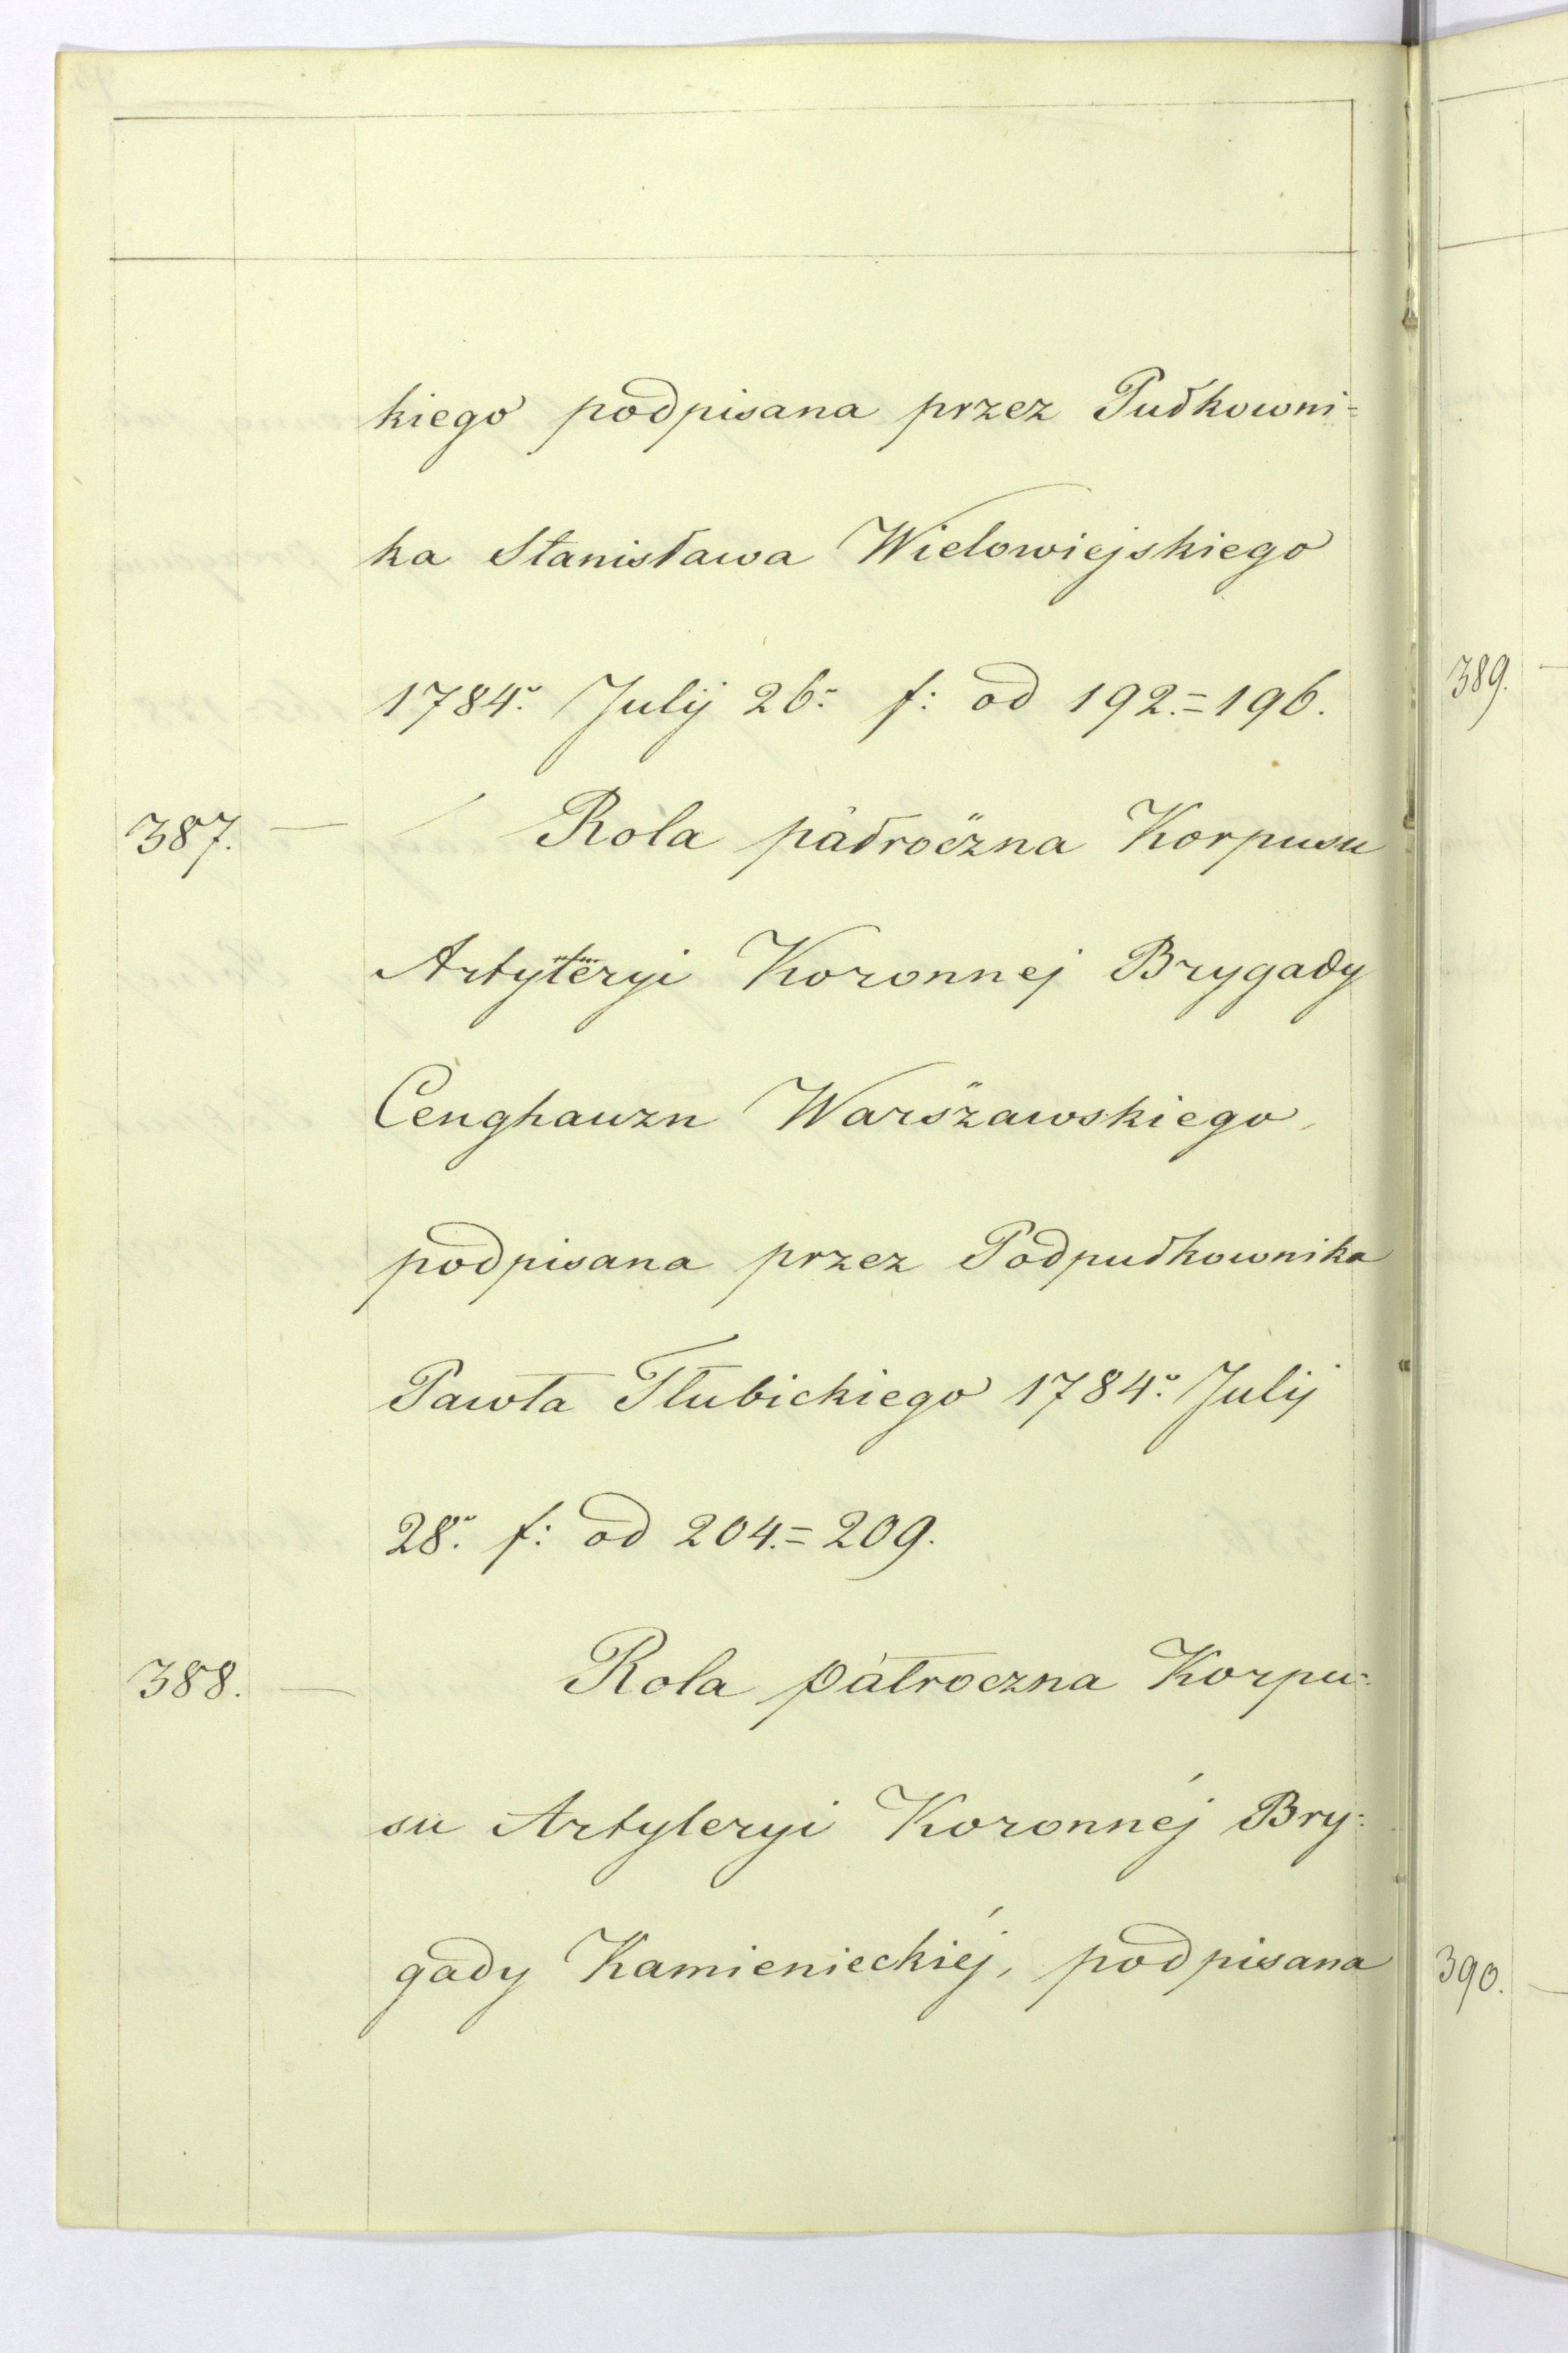 kiego podpisana przez Pułkowni=
ka Stanisława Wielowiejskiego
1784. Julij 26. f: od 192.=196.
387. — Rola pałroczna Korpusu
Artyleryi Koronnej Brygady
Cenghauzn Warszawskiego,
podpisana przez Podpułkownika
Pawła Tłubickiego 1784. Julij
28. f: od 204.=209.
388. — Rola pałroczna Korpu=
su Artyleryi Koronnéj Bry=
gady Kamienieckiéj, podpisana
389.
390.